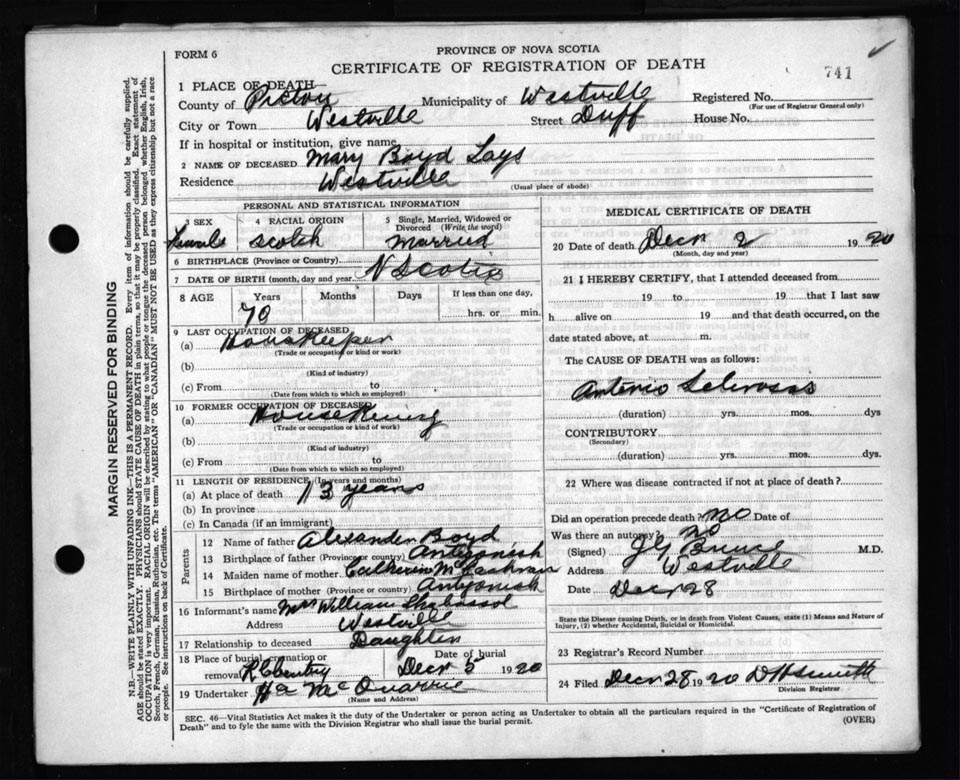 FORM 6
PROVINCE OF NOVA SCOTIA
CERTIFICATE OF REGISTRATION OF DEATH
741
1 PLACE OF DEATH
County of Pictou Municipality of Westville
Registered No.
(For use of Registrar General only)
City or Town Westville Street Duff House No.
If in hospital or institution, give name
2 NAME OF DECEASED Mary Boyd Lays
Residence Westville
(Usual place of abode)
PERSONAL AND STATISTICAL INFORMATION
3 SEX Female
4 RACIAL ORIGIN Scotch
5 Single, Married, Widowed or Divorced (Write the word) Married
6 BIRTHPLACE (Province or Country) N Scotia
7 DATE OF BIRTH (month, day and year)
8 AGE Years Months Days If less than one day,
70 hrs. or min.
9 LAST OCCUPATION OF DECEASED
(a) Housekeeper
(Trade or occupation or kind or work)
(b)
(Kind of industry)
(c) From to
(Date from which to which so employed)
10 FORMER OCCUPATION OF DECEASED
(a)
(Trade or occupation or kind of work)
(b)
(Kind of industry)
(c) From to
(Date from which to which so employed)
11 LENGTH OF RESIDENCE (In years and months)
(a) At place of death 13 years
(b) In province
(c) In Canada (if an immigrant)
Parents
12 Name of father Alexander Boyd
13 Birthplace of father (Province or country) Antigonish
14 Maiden name of mother Catherine
15 Birthplace of mother (Province or country) Antigonish
16 Informant's name Mrs William
Address Westville
17 Relationship to deceased Daughter
18 Place of burial, cremation or removal
Date of burial Decr 5 1920
19 Undertaker McQuarrie
(Name and Address)
MEDICAL CERTIFICATE OF DEATH
20 Date of death Decr 2 1920
(Month, day and year)
21 I HEREBY CERTIFY, that I attended deceased from
19 to 19 that I last saw
h alive on 19 and that death occurred, on the
date stated above, at m.
The CAUSE OF DEATH was as follows:
Anterio Sclerosis
(duration) yrs. mos. dys
CONTRIBUTORY
(Secondary)
(duration) yrs. mos. dys.
22 Where was disease contracted if not at place of death?
Did an operation precede death? no Date of
Was there an autopsy? no
(Signed) M.D.
Address Westville
Date Decr 28
State the Disease causing Death, or in death from Violent Causes, state (1) Means and Nature of
Injury, (2) whether Accidental, Suicidal or Homicidal.
23 Registrar's Record Number
24 Filed Decr 28 1920 D H Smith
Division Registrar
SEC. 46—Vital Statistics Act makes it the duty of the Undertaker or person acting as Undertaker to obtain all the particulars required in the "Certificate of Registration of
Death" and to fyle the same with the Division Registrar who shall issue the burial permit.
(OVER)
MARGIN RESERVED FOR BINDING
N.B.—WRITE PLAINLY WITH UNFADING INK—THIS IS A PERMANENT RECORD. Every item of information should be carefully supplied.
AGE should be stated EXACTLY. PHYSICIANS should STATE CAUSE OF DEATH in plain terms, so that it may be properly classified. Exact statement of
OCCUPATION is very important. RACIAL ORIGIN will be described by stating to what people or tongue the deceased person belonged whether English, Irish,
Scotch, French, German, Russian, Ruthenian, etc. The terms "AMERICAN" OR "CANADIAN" MUST NOT BE USED as they express citizenship but not a race
or people. See instructions on back of Certificate.